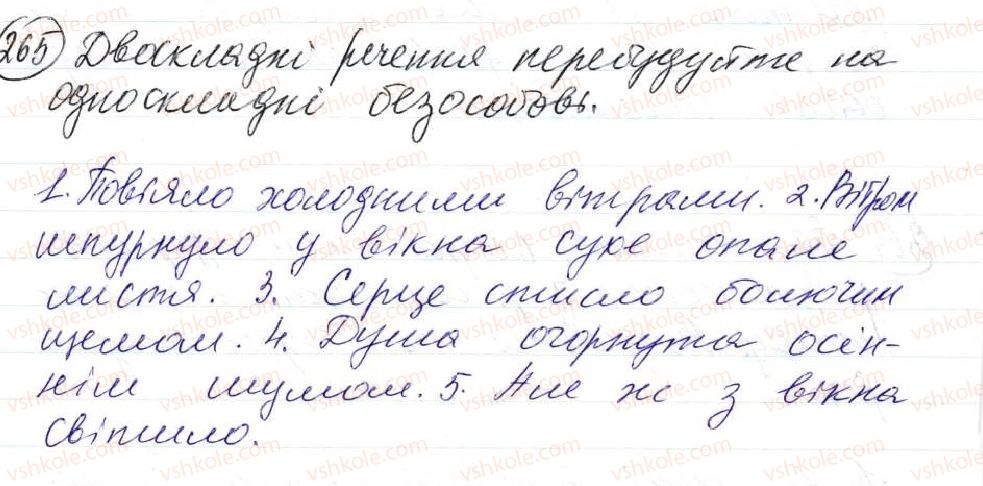 265 Двоскладні речення перебудуйте на
односкладні безособові.
1. Повіяло холодними вітрами. 2. Вітром
шпурнуло у вікна сухе опале
листя. 3. Серце стисло болючим
щемом. 4. Душа огорнута осін-
нім шумом. 5. Але ж з вікна
світило.